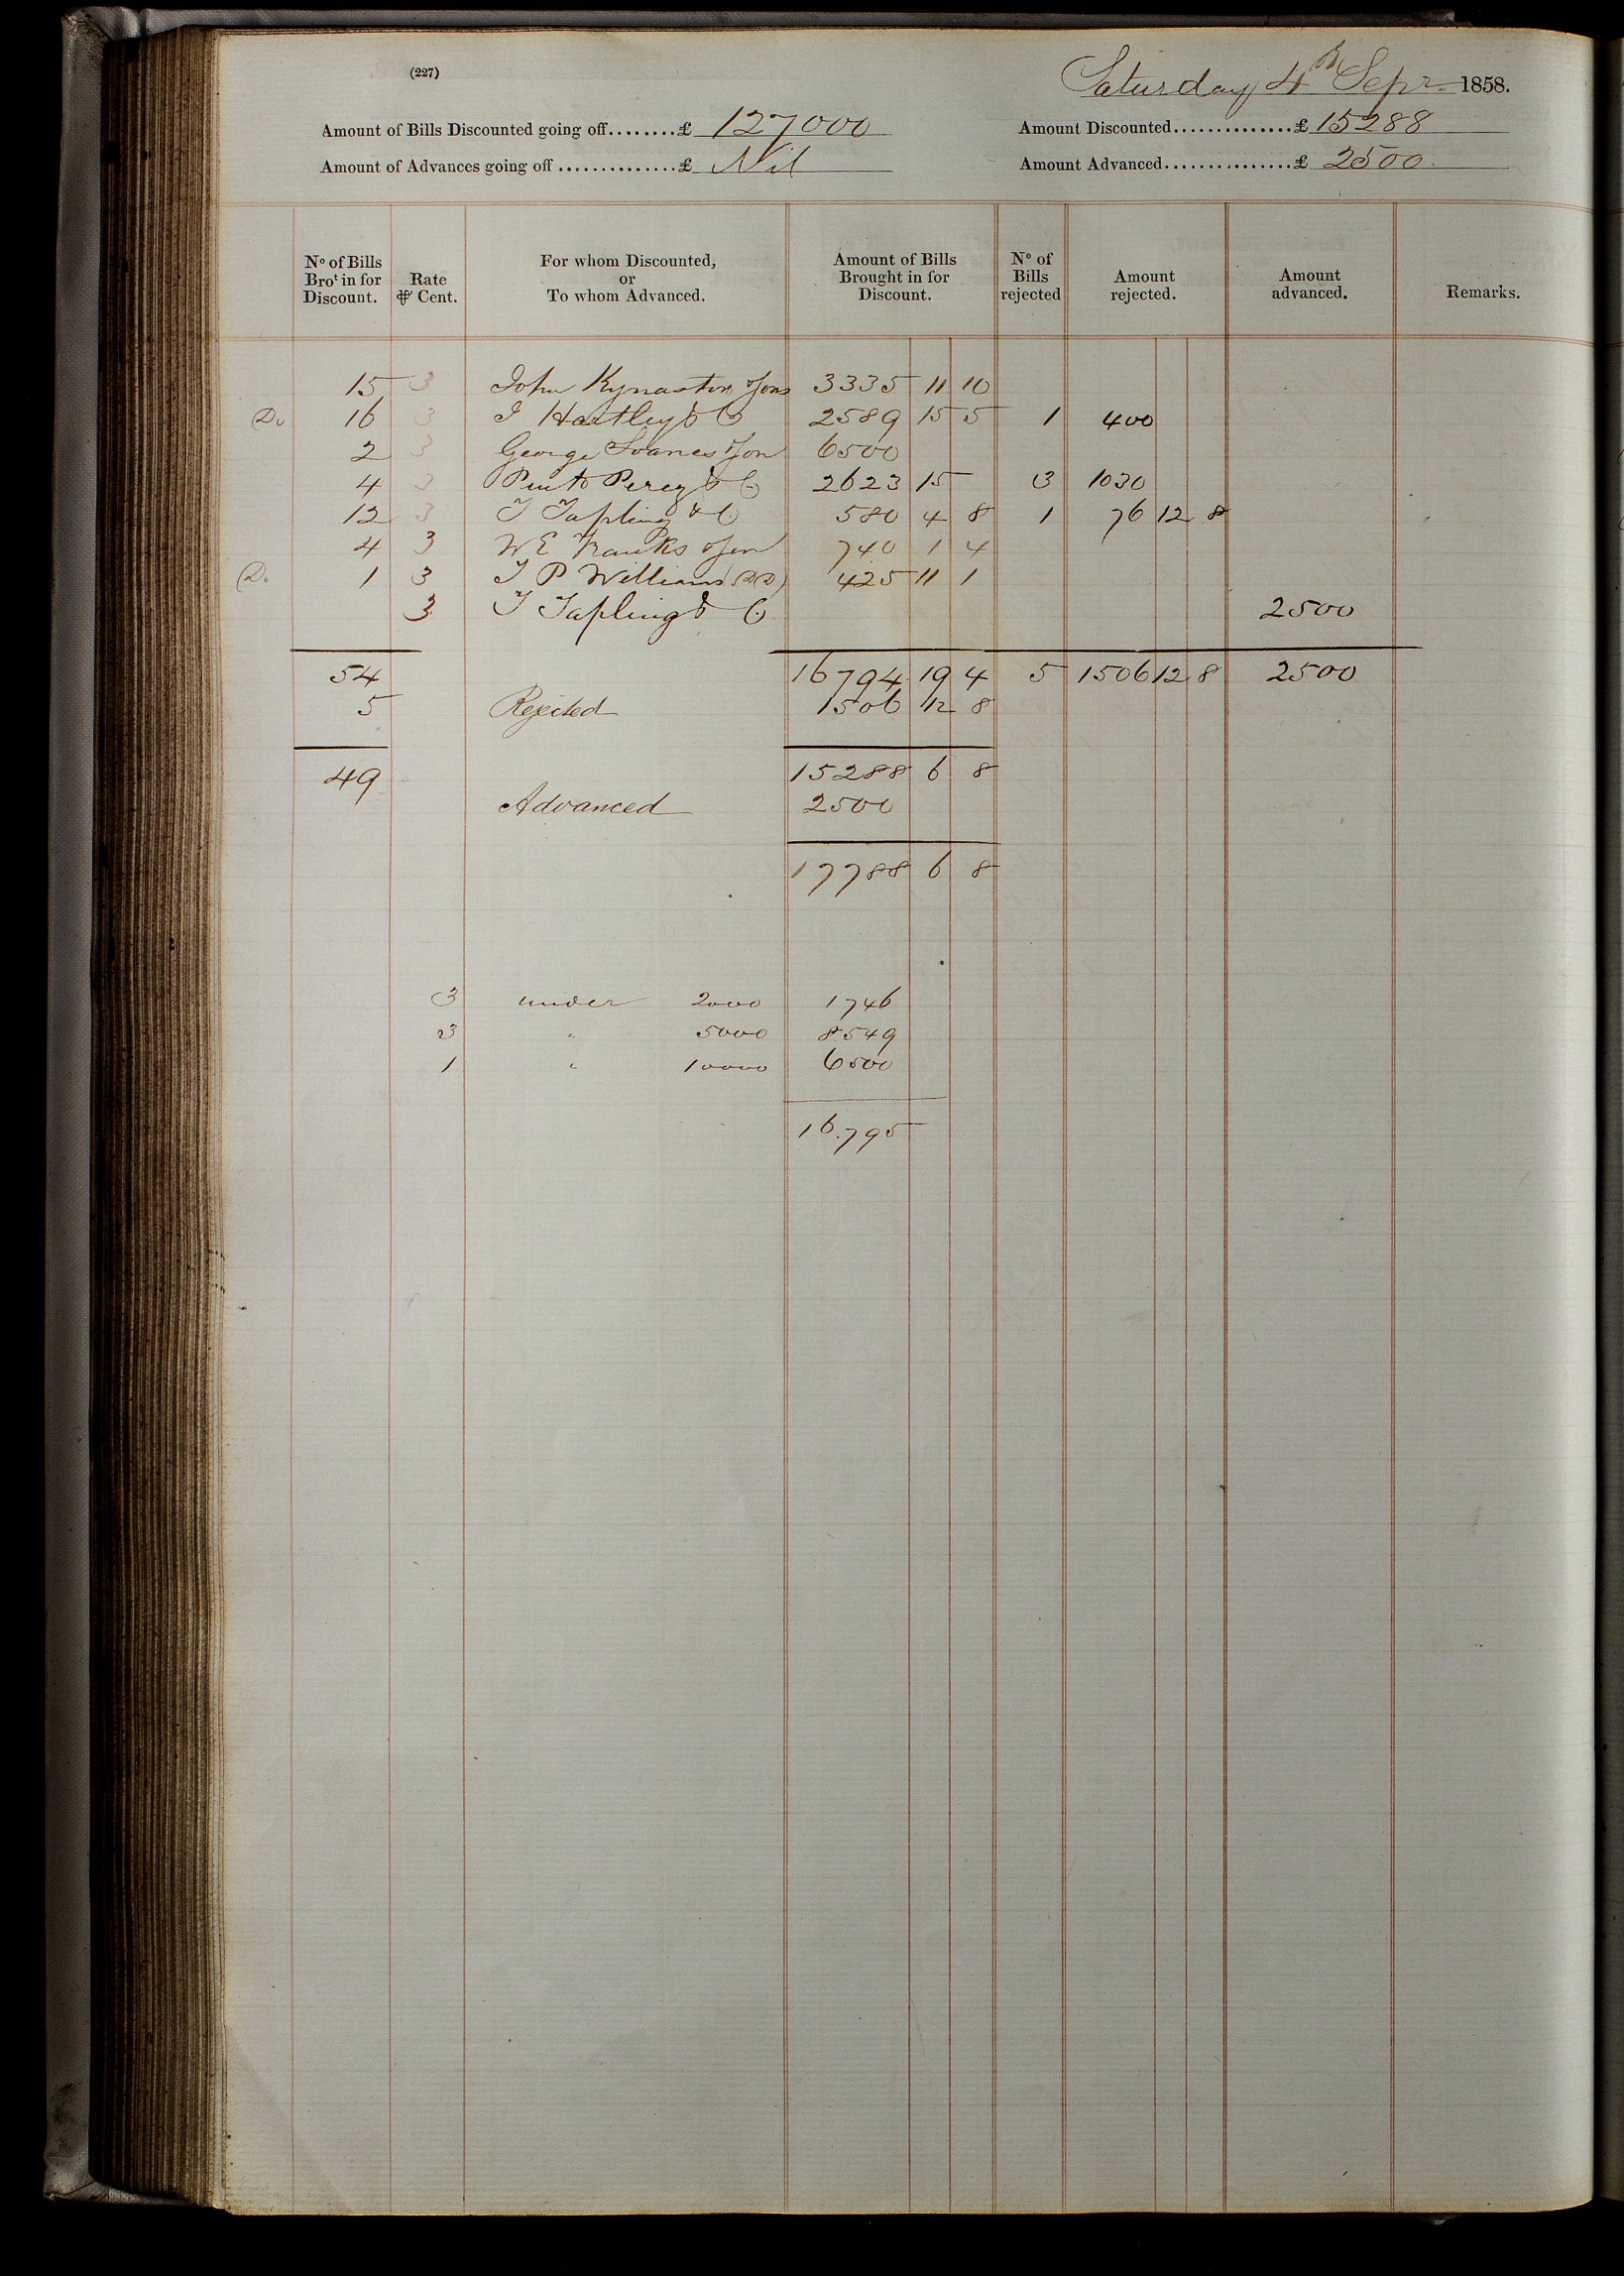 (227)
Saturday 4th Sepr. 1858.
Amount of Bills Discounted going off........£ 127000
Amount Discounted..............£ 15288
Amount of Advances going off ..............£ Nil
Amount Advanced...............£ 2500
No of Bills Brot in for Discount. Rate ⅌ Cent. For whom Discounted, or To whom Advanced. Amount of Bills Brought in for Discount. No of Bills rejected Amount rejected. Amount advanced. Remarks.
15 3 John Kynaston & Sons 3335 11 10
Do 16 3 J Hartley & Co 2589 15 5 1 400
2 3 George Soanes & Son 6500
4 3 Pinto Perez & Co 2623 15 3 1030
12 3 T Tapling & Co 580 4 8 1 76 12 8
4 3 W E Franks & Son 740 1 4
Do 1 3 T P Williams (DD) 425 11 1
3 T Tapling & Co 2500
54 16794 19 4 5 1506 12 8 2500
5 Rejected 1506 12 8
49 15288 6 8
Advanced 2500
17788 6 8
3 under 2000 1746
3 " 5000 8549
1 " 10000 6500
16.795